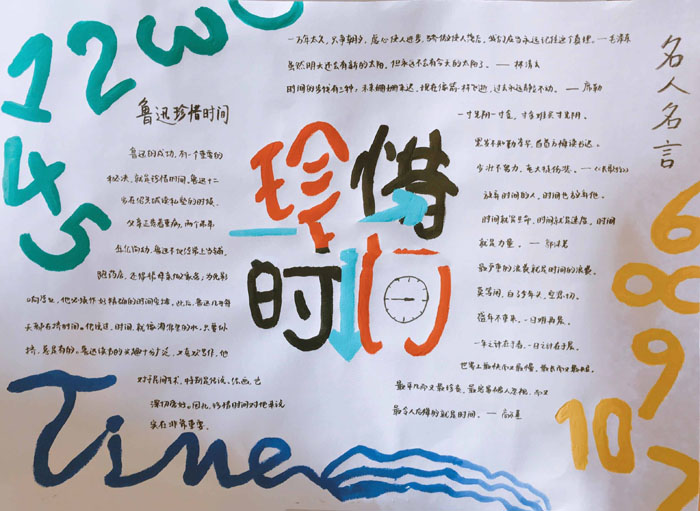 12
3
45
鲁迅珍惜时间
鲁迅的成功,有一个重要的
秘决,就是珍惜时间。鲁迅十二
岁在绍兴城读私塾的时候,
父亲正患着重病,两个弟弟
年纪尚幼,鲁迅不仅经常上当铺,
跑药店,还得帮母亲做家务,为免影
响学业,他必须作好精确的时间安排。此后,鲁迅几乎每
天都在挤时间。他说过:时间,就像海绵里的水,只要你
挤,总是有的。鲁迅读书的兴趣十分广泛,又喜欢写作,他
对于民间艺术,特别是传说、绘画,也
深切爱好。因此,珍惜时间对他来说
实在非常重要。
珍惜
时间
一万年太久,只争朝夕。虚心使人进步,骄傲使人落后,我们应当永远记住这个真理。— 毛泽东
虽然明天还会有新的太阳,但永远不会有今天的太阳了。— 林清玄
时间的步伐有三种:未来姗姗来迟,现在像箭一样飞逝,过去永远静立不动。— 席勒
一寸光阴一寸金,寸金难买寸光阴。
黑发不知勤学早,白首方悔读书迟。
少壮不努力,老大徒伤悲。—《长歌行》
放弃时间的人,时间也放弃他。
时间就是生命,时间就是速度,时间
就是力量。— 郭沫若
最严重的浪费就是时间的浪费。
莫等闲,白了少年头,空悲切。
盛年不重来,一日难再晨。
一年之计在于春,一日之计在于晨。
世界上最快而又最慢,最长而又最短,
最平凡而又最珍贵,最易被人忽视,而又
最令人后悔的就是时间。— 高尔基
名人名言
6
8
9
10
7
Time